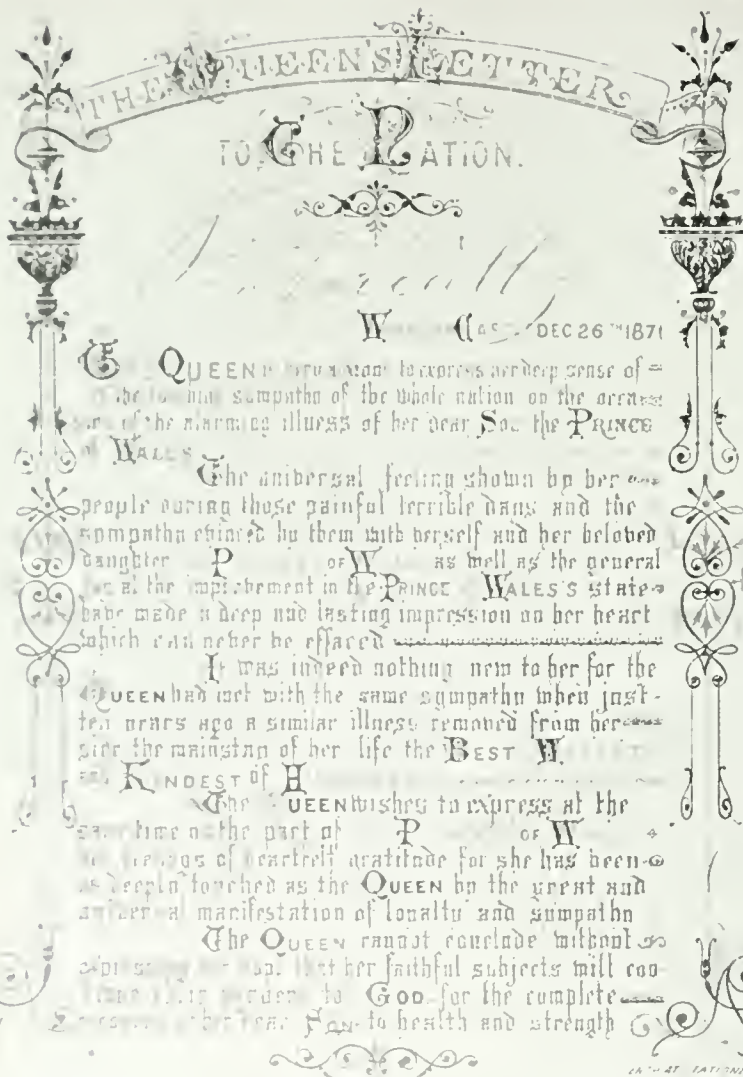 THE QUEEN'S LETTER
TO THE NATION.
WINDSOR CASTLE DEC 26TH 1871
THE QUEEN is very anxious to express her deep sense of
the touching sympathy of the whole nation on the occa
sion of the alarming illness of her dear Son the PRINCE
of WALES
The universal feeling shown by her
people during those painful terrible days and the
sympathy evinced by them with herself and her beloved
daughter P OF W as well as the general
joy at the improvement in the PRINCE WALES'S state
have made a deep and lasting impression on her heart
which can never be effaced
It was indeed nothing new to her for the
QUEEN had met with the same sympathy when just
ten years ago a similar illness removed from her
side the mainstay of her life the BEST W
KINDEST of H
The QUEEN wishes to express at the
same time on the part of P OF W
feelings of heartfelt gratitude for she has been
as deeply touched as the QUEEN by the great and
universal manifestation of loyalty and sympathy
The QUEEN cannot conclude without
expressing her hope that her faithful subjects will con
tinue their prayers to GOD for the complete
recovery of her dear SON to health and strength